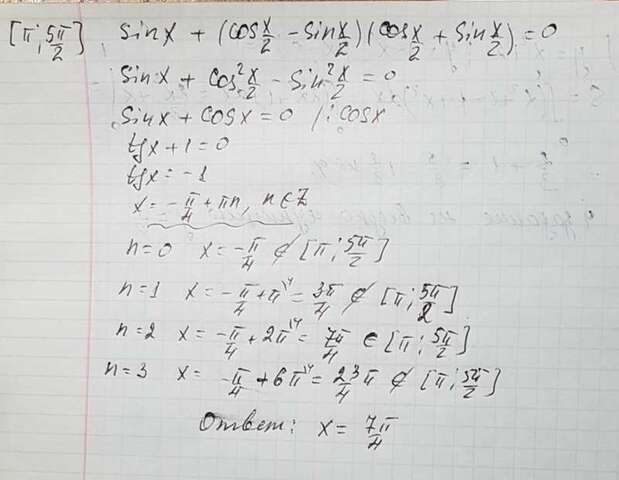 [π; 5π/2] sinx + (cos x/2 - sin x/2)(cos x/2 + sin x/2) = 0
sinx + cos² x/2 - sin² x/2 = 0
sinx + cosx = 0 / : cosx
tgx + 1 = 0
tgx = -1
x = -π/4 + πn, n ∈ Z
n=0 x = -π/4 ∉ [π; 5π/2]
n=1 x = -π/4 + π\4 = 3π/4 ∉ [π; 5π/2]
n=2 x = -π/4 + 2π\4 = 7π/4 ∈ [π; 5π/2]
n=3 x = -π/4 + 6π\4 = 23/4 π ∉ [π; 5π/2]
Ответ: x = 7π/4